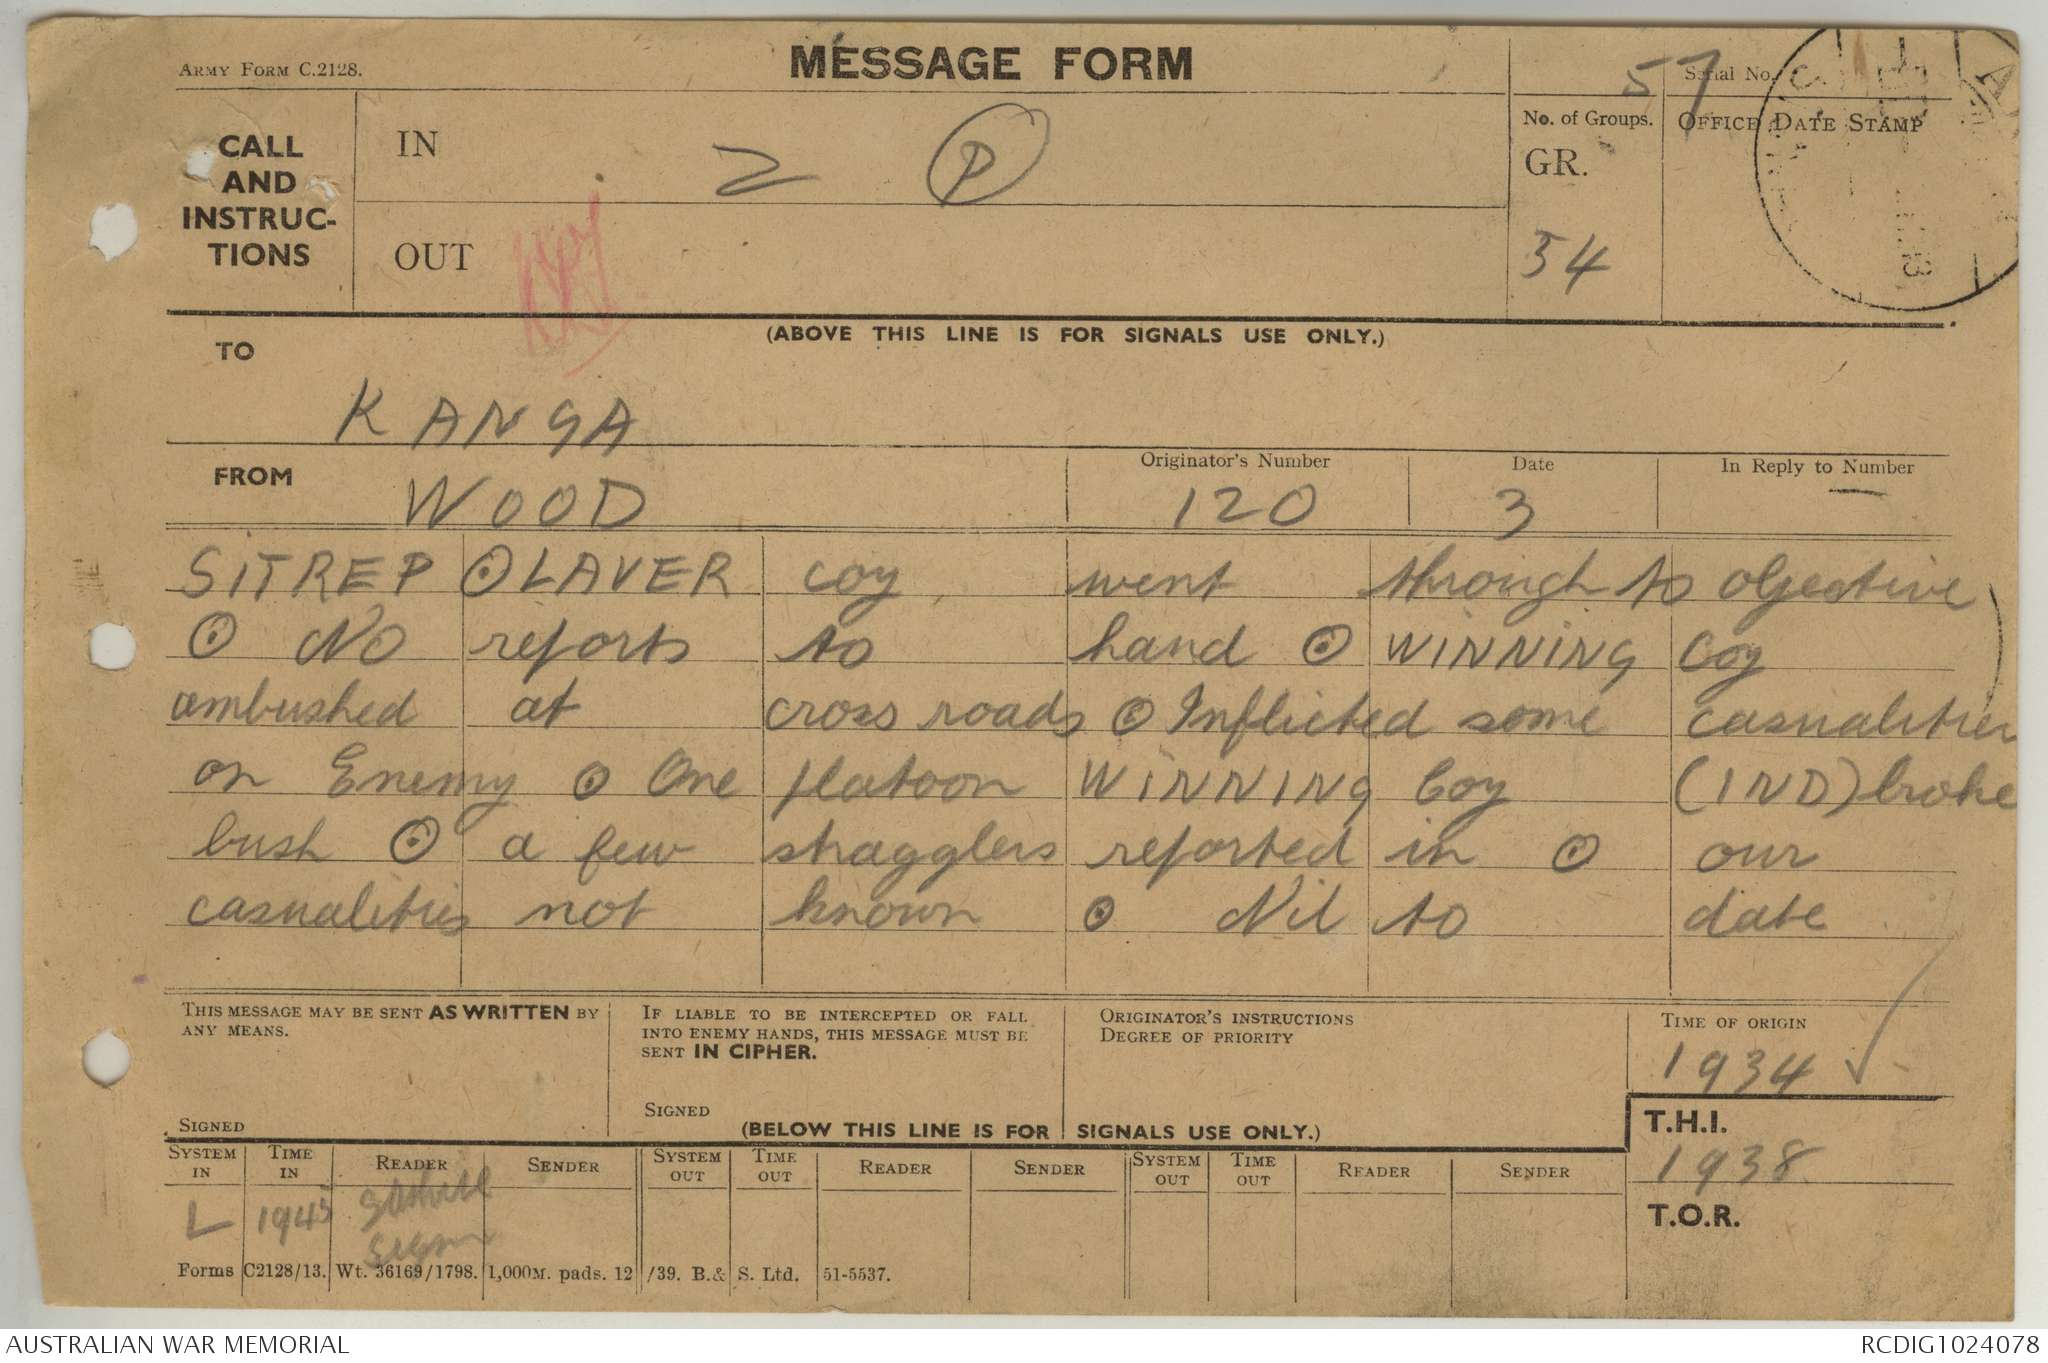 ARMY FORM C.2128.
MESSAGE FORM
57
Serial No.
CALL AND INSTRUC-TIONS
IN
2 P
OUT
No. of Groups.
GR.
54
OFFICE DATE STAMP
(ABOVE THIS LINE IS FOR SIGNALS USE ONLY.)
TO
KANGA
FROM
WOOD
Originator's Number
120
Date
3
In Reply to Number
—
SITREP ⊙ LAVER coy went through to objective
⊙ No reports to hand ⊙ WINNING Coy
ambushed at cross roads ⊙ Inflicted some casualities
on Enemy ⊙ One platoon WINNING Coy (IND) broke
bush ⊙ a few stragglers reported in ⊙ our
casualities not known ⊙ Nil to date
THIS MESSAGE MAY BE SENT AS WRITTEN BY
ANY MEANS.
SIGNED
IF LIABLE TO BE INTERCEPTED OR FALL
INTO ENEMY HANDS, THIS MESSAGE MUST BE
SENT IN CIPHER.
SIGNED
ORIGINATOR'S INSTRUCTIONS
DEGREE OF PRIORITY
TIME OF ORIGIN
1934
(BELOW THIS LINE IS FOR SIGNALS USE ONLY.)
T.H.I.
1938
T.O.R.
SYSTEM IN TIME IN READER SENDER SYSTEM OUT TIME OUT READER SENDER SYSTEM OUT TIME OUT READER SENDER
L 1945
Forms C2128/13. Wt. 36169/1798. 1,000M. pads. 12/39. B.& S. Ltd. 51-5537.
AUSTRALIAN WAR MEMORIAL
RCDIG1024078